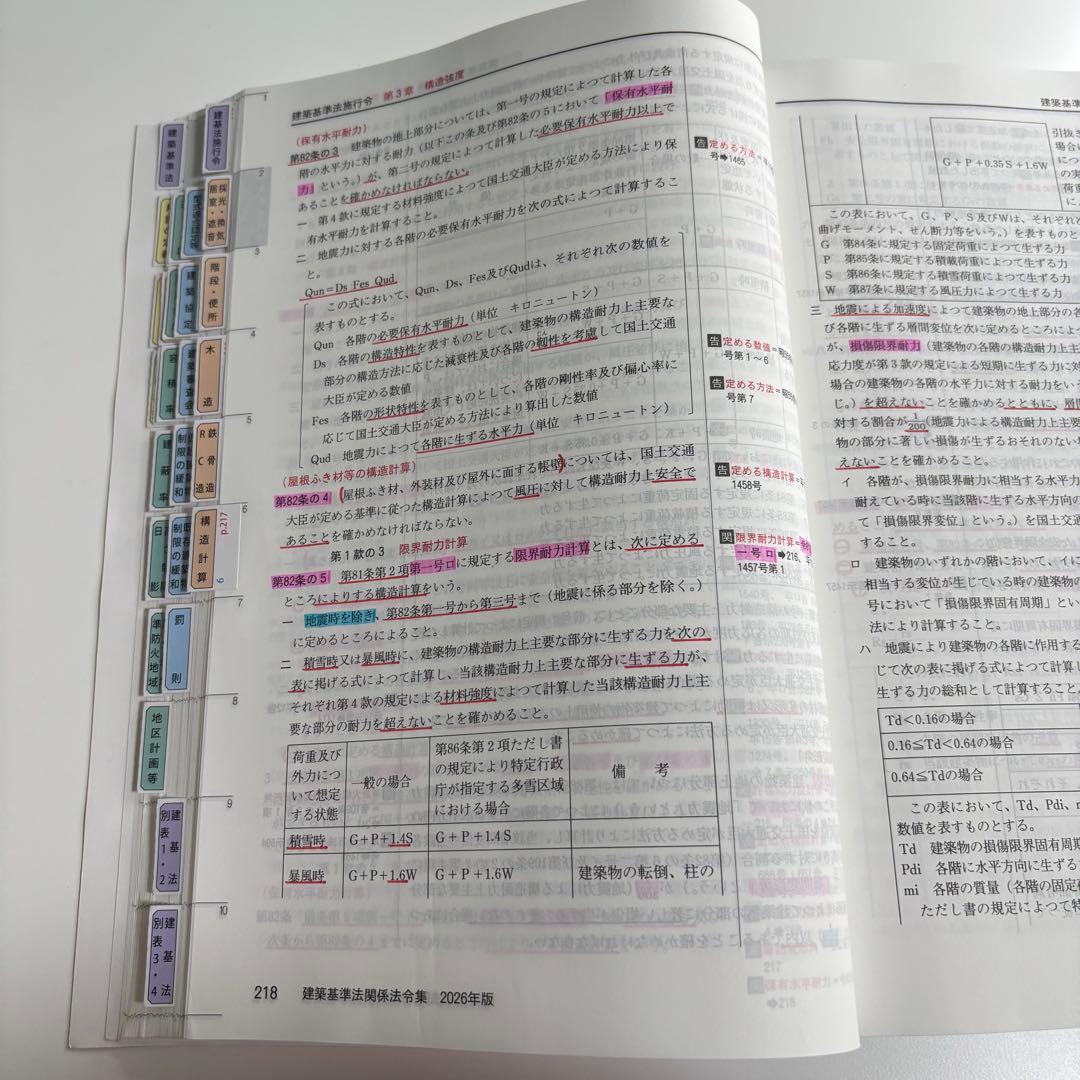 建築基準法施行令　第3章　構造強度
（保有水平耐力）
第82条の3　建築物の地上部分については、第一号の規定によつて計算した各
階の水平力に対する耐力（以下この条及び第82条の5において「保有水平耐
力」という。）が、第二号の規定によつて計算した必要保有水平耐力以上で
あることを確かめなければならない。
一　第4款に規定する材料強度によつて国土交通大臣が定める方法により保
有水平耐力を計算すること。
二　地震力に対する各階の必要保有水平耐力を次の式によつて計算するこ
と。
Qun=Ds Fes Qud
この式において、Qun、Ds、Fes及びQudは、それぞれ次の数値を
表すものとする。
Qun　各階の必要保有水平耐力（単位　キロニュートン）
Ds　各階の構造特性を表すものとして、建築物の構造耐力上主要な
部分の構造方法に応じた減衰性及び各階の靱性を考慮して国土交通
大臣が定める数値
Fes　各階の形状特性を表すものとして、各階の剛性率及び偏心率に
応じて国土交通大臣が定める方法により算出した数値
Qud　地震力によつて各階に生ずる水平力（単位　キロニュートン）
（屋根ふき材等の構造計算）
第82条の4　屋根ふき材、外装材及び屋外に面する帳壁については、国土交通
大臣が定める基準に従つた構造計算によつて風圧に対して構造耐力上安全で
あることを確かめなければならない。
第1款の3　限界耐力計算
第82条の5　第81条第2項第一号ロに規定する限界耐力計算とは、次に定める
ところによりする構造計算をいう。
一　地震時を除き、第82条第一号から第三号まで（地震に係る部分を除く。）
に定めるところによること。
二　積雪時又は暴風時に、建築物の構造耐力上主要な部分に生ずる力を次の
表に掲げる式によつて計算し、当該構造耐力上主要な部分に生ずる力が、
それぞれ第4款の規定による材料強度によつて計算した当該構造耐力上主
要な部分の耐力を超えないことを確かめること。
荷重及び
外力につ
いて想定
する状態
一般の場合
第86条第2項ただし書
の規定により特定行政
庁が指定する多雪区域
における場合
備　考
積雪時　G+P+1.4S　G+P+1.4S
暴風時　G+P+1.6W　G+P+1.6W　建築物の転倒、柱の
218　建築基準法関係法令集　2026年版
告 定める方法=
号➡1465
告 定める数値=
号第1～6
告 定める方法=
号第7
告 定める構造計算=
1458号
関 限界耐力計算=
一号ロ➡216、
1457号第1
建築基準法
建基法施行令
採光・換気
居室・遮音
階段・便所
建築協定
木造
建築審査会
容積率
鉄骨造
RC造
建蔽率
制限の緩和
構造計算
p.217
制限の緩和
日影
罰則
準防火地域
地区計画等
建基法
別表1・2
建基法
別表3・4
1
2
3
4
5
6
6
7
8
9
10
建築基準
G+P+0.35S+1.6W
引抜き
場合に
の実
荷重
に
この表において、G、P、S及びWは、それぞれ次
曲げモーメント、せん断力等をいう。）を表すものと
G　第84条に規定する固定荷重によつて生ずる力
P　第85条に規定する積載荷重によつて生ずる力
S　第86条に規定する積雪荷重によつて生ずる力
W　第87条に規定する風圧力によつて生ずる力
三　地震による加速度によつて建築物の地上部分の各
び各階に生ずる層間変位を次に定めるところによ
が、損傷限界耐力（建築物の各階の構造耐力上主
応力度が第3款の規定による短期に生ずる力に対
場合の建築物の各階の水平力に対する耐力をいう
じ。）を超えないことを確かめるとともに、層間
対する割合が1/200（地震力による構造耐力上主要
物の部分に著しい損傷が生ずるおそれのない
えないことを確かめること。
イ　各階が、損傷限界耐力に相当する水平力
耐えている時に当該階に生ずる水平方向の
て「損傷限界変位」という。）を国土交
すること。
ロ　建築物のいずれかの階において、イに
相当する変位が生じている時の建築物の
号において「損傷限界固有周期」という
法により計算すること。
ハ　地震により建築物の各階に作用する
じて次の表に掲げる式によつて計算し
生ずる力の総和として計算すること
Td<0.16の場合
0.16≦Td<0.64の場合
0.64≦Tdの場合
この表において、Td、Pdi、
数値を表すものとする。
Td　建築物の損傷限界固有周期
Pdi　各階に水平方向に生ずる
mi　各階の質量（各階の固定
ただし書の規定によつて特